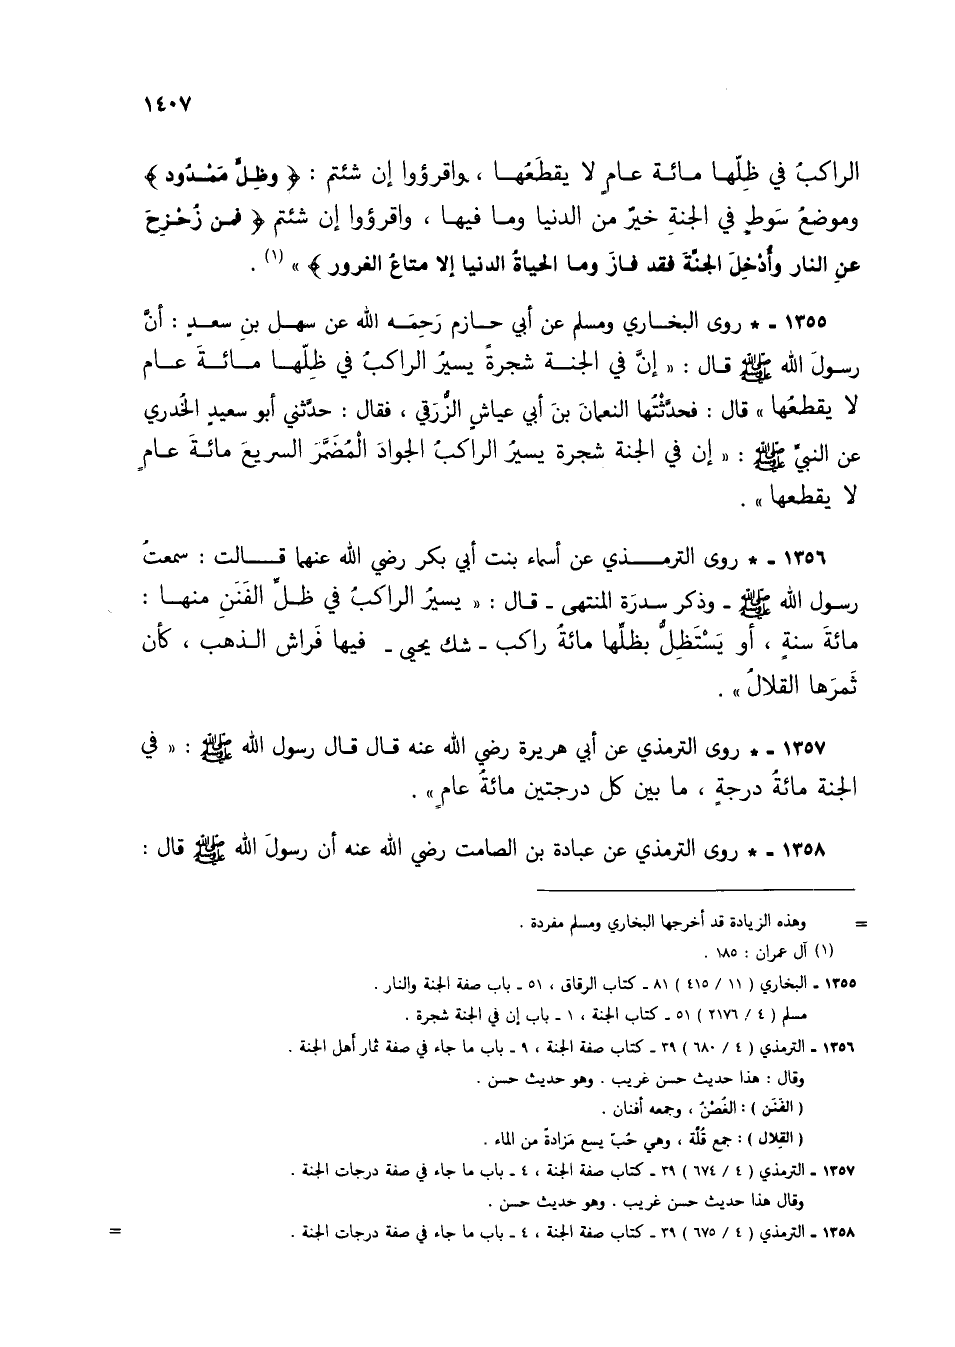 ١٤٠٧
الراكبُ في ظِلّها مائة عامٍ لا يقطَعُها ، واقرؤوا إن شئتم : ﴿ وظِلٍّ مَمْدُود ﴾
وموضعُ سَوطٍ في الجنةِ خيرٌ من الدنيا وما فيها ، واقرؤوا إن شئتم ﴿ فمن زُحْزِحَ
عنِ النار وأُدْخِلَ الجنَّةَ فقد فازَ وما الحياةُ الدنيا إلا متاعُ الغرور ﴾ » (١) .
١٣٥٥ - * روى البخاري ومسلم عن أبي حازم رَحِمَه الله عن سهل بنِ سعدٍ : أنَّ
رسولَ الله ﷺ قال : « إنَّ في الجنة شجرةً يسيرُ الراكبُ في ظلّها مائةَ عام
لا يقطعُها » قال : فحدَّثْتُها النعمانَ بنَ أبي عياشٍ الزُّرَقي ، فقال : حدَّثني أبو سعيدٍ الخُدري
عن النبيّ ﷺ : « إن في الجنة شجرة يسيرُ الراكبُ الجوادَ الْمُضَمَّرَ السريعَ مائةَ عامٍ
لا يقطعها » .
١٣٥٦ - * روى الترمذي عن أسماء بنت أبي بكر رضي الله عنها قالت : سمعتُ
رسول الله ﷺ - وذكر سدرَة المنتهى - قال : « يسيرُ الراكبُ في ظلِّ الفَنَنِ منها :
مائةَ سنةٍ ، أو يَسْتَظِلُّ بظلِّها مائةُ راكب - شك يحيى - فيها فَراش الذهب ، كأن
ثَمرَها القلالُ » .
١٣٥٧ - * روى الترمذي عن أبي هريرة رضي الله عنه قال قال رسول الله ﷺ : « في
الجنة مائةُ درجةٍ ، ما بين كل درجتين مائةُ عامٍ » .
١٣٥٨ - * روى الترمذي عن عبادة بن الصامت رضي الله عنه أن رسولَ الله ﷺ قال :
= وهذه الزيادة قد أخرجها البخاري ومسلم مفردة .
(١) آل عمران : ١٨٥ .
١٣٥٥ - البخاري ( ١١ / ٤١٥ ) ٨١ - كتاب الرقاق ، ٥١ - باب صفة الجنة والنار .
مسلم ( ٤ / ٢١٧٦ ) ٥١ - كتاب الجنة ، ١ - باب إن في الجنة شجرة .
١٣٥٦ - الترمذي ( ٤ / ٦٨٠ ) ٣٩ - كتاب صفة الجنة ، ٩ - باب ما جاء في صفة ثمار أهل الجنة .
وقال : هذا حديث حسن غريب . وهو حديث حسن .
( الفَنَن ) : الغُصْنُ ، وجمعه أفنان .
( القِلال ) : جمع قُلَّة ، وهي حُبّ يسع مَزادةً من الماء .
١٣٥٧ - الترمذي ( ٤ / ٦٧٤ ) ٣٩ - كتاب صفة الجنة ، ٤ - باب ما جاء في صفة درجات الجنة .
وقال هذا حديث حسن غريب . وهو حديث حسن .
١٣٥٨ - الترمذي ( ٤ / ٦٧٥ ) ٣٩ - كتاب صفة الجنة ، ٤ - باب ما جاء في صفة درجات الجنة . =